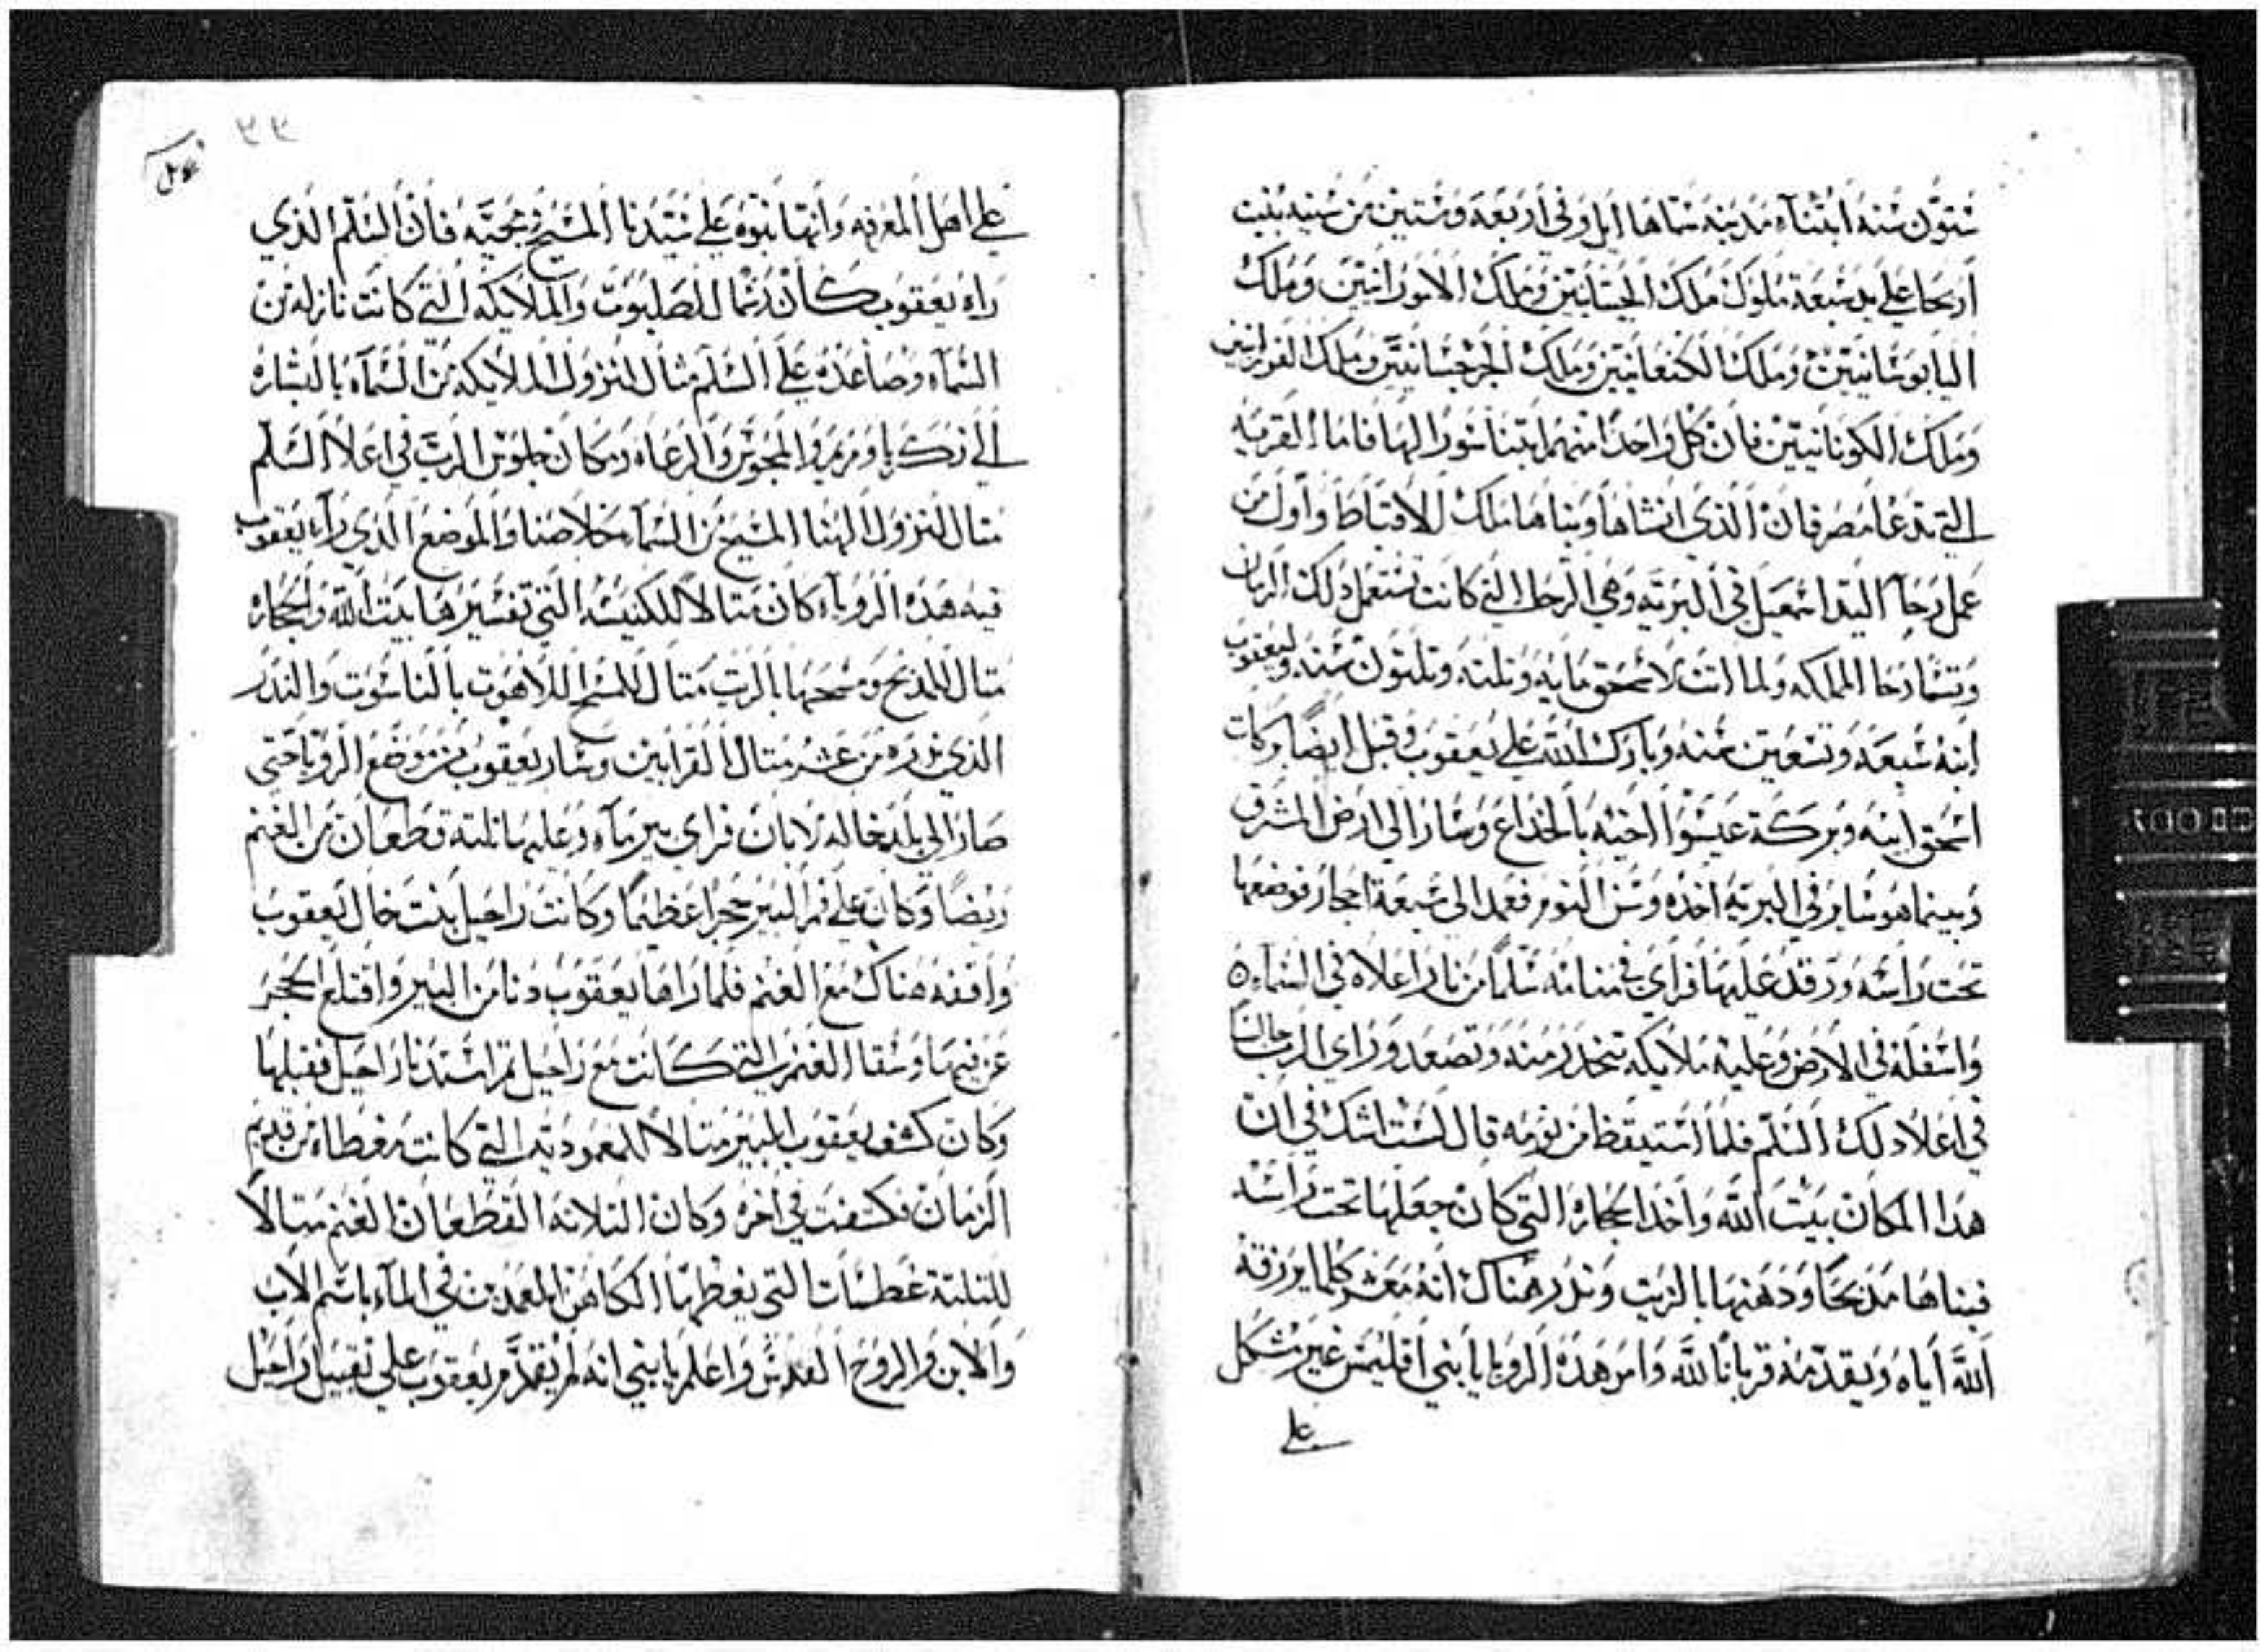 ستون سنه ابتناء مدينه سماها ايل وفي اربعه وستين من سنيه بنيت
اريحا على يد سبعة ملوك ملك الحيتانيين وملك الامورانيين وملك
اليابوسانيين وملك الكنعانيين وملك الجرجسانيين وملك الفورانيين
وملك الكونانيين فان كل واحدا منهم ابتنا سورا لها فاما القريه
التي تدعا مصر فان الذي انشاها وبناها ملك للاقباط واول من
عمل رحاً اليد اسمعيل في البريه وهي الرحا التي كانت تستعمل دلك الزمان
وتسما رحا المملكه ولما اتت لاسحق مايه وتلته وتلتون سنه وليعقوب
ابنه سبعه وتسعين سنه وبارك الله على يعقوب وقبل ايضا بركات
اسحق ابيه وبركة عيسوا اخيه بالخداع وسار الى ارض المشرق
وبينما هو ساير في البريه اخده وسن النوم فعمد الى سبعة احجار فوضعها
تحت راسه ورقد عليها فراى في منامه سلماً من نار اعلاه في السماء
واسفله في الارض وعليه ملايكه تنحدر منه وتصعد وراى الرب جالساً
في اعلا دلك السلم فلما استيقظ من نومه قال لست اشك في ان
هدا المكان بيت الله واخد الحجاره التي كان جعلها تحت راسه
فبناها مدبحاً ودهنها بالزيت وندر هناك انه معشر كلما يرزقه
الله اياه ويقدمه قرباناً لله وامر هده الرويا يا ابني اقليمس غير مشكل
على
٣٣
على اهل المعرفه وانها نبوه على سيدنا المسيح ومجيه فان السلم الذي
راه يعقوب كان رسما للصلبوت والملايكه التي كانت نازله من
السماء وصاعده على السلم مثال لنزول الملايكه من السماء بالبشاره
الى زكريا ومريم والمجوس والرعاه ومكان جلوس الرب في اعلا السلم
متال لنزول الهنا المسيح من السماء لخلاصنا والموضع الذي راء يعقوب
فيه هده الروياء كان متالا للكنيسه التي تفسيرها بيت الله والحجاره
متال للمدبح ومسحها بالزيت متال لامسح اللاهوت بالناسوت والندر
الذي ندره من عشر متال القرابين وسار يعقوب من موضع الرويا حتى
صار الى بلد خاله لابان فراى بير ماء وعليها تلته قطعان من الغنم
ربضاً وكان على فم البير حجرا عظيما وكانت راحيل بنت خال يعقوب
واقفه هناك مع الغنم فلما راها يعقوب دنا من البير واقتلع الحجر
عن فيها وسقا الغنم التي كانت مع راحيل تم استدنا راحيل فقبلها
وكان كشف يعقوب للبير متالا للمعموديه التي كانت مغطاه من قديم
الزمان فكشفت في اخره وكان التلاته القطعان الغنم متالاً
للتلتة غطسات التي يغطها الكاهن المعمدين في الماء باسم الاب
والابن والروح القدس واعلم يا بني انه لم يقدم يعقوب على تقبيل راحيل